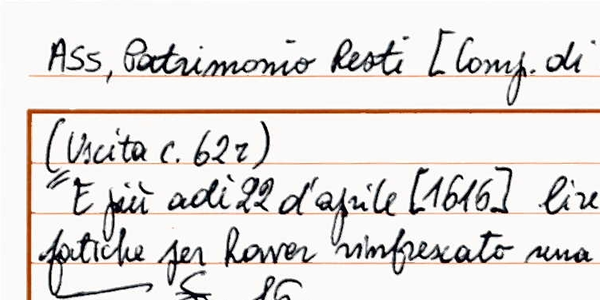 Ass, Patrimonio Resti [Comp. di
(Uscita c. 62r)
"E più adì 22 d'aprile [1616] lire
fatiche per haver rinfrescato una
16